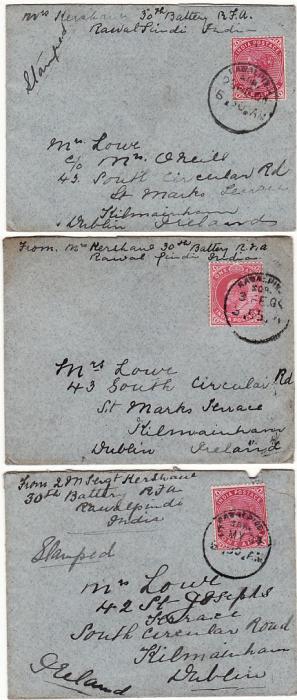 Mrs Kershaw 30th Battery R.F.A.
Rawal Pindi India
Stamped
INDIA POSTAGE
Mrs. Lowe
c/o Mrs. O'Neill
43. South Circular Rd
St Marks Terrace
Kilmainham
Dublin Ireland
From. Mrs Kershaw 30th Battery R.F.A
Rawal Pindi India
Mrs Lowe
43 South Circular Rd
St Marks Terrace
Kilmainham
Dublin Ireland
From 2 M Sergt Kershaw
30th Battery RFA
Rawalpindi
India
INDIA POSTAGE
Stamped
Mrs Lowe
42 St Josephs
Terrace
South Circular Road
Kilmainham
Dublin
Ireland